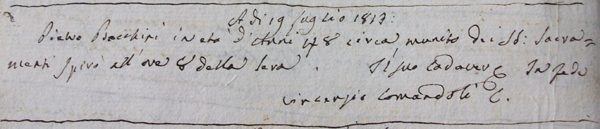 A di 19 Luglio 1817:
Pietro Bacchini in età d'Anni 48 circa munito dei SS: Sacra=
menti spirò all'ore 8 della sera. Il suo Cadaver In fede
Vincenzio Comandoli C.